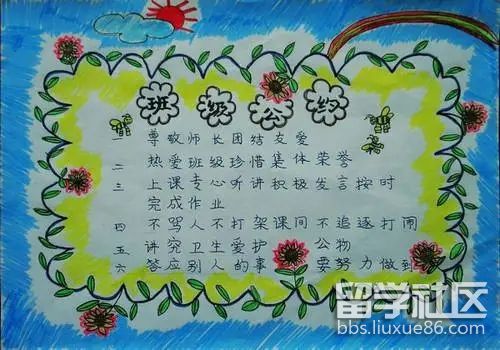 班级公约
一 尊敬师长团结友爱
二 热爱班级珍惜集体荣誉
三 上课专心听讲积极发言按时
完成作业
四 不骂人不打架课间不追逐打闹
五 讲究卫生爱护公物
六 答应别人的事要努力做到
留学社区
bbs.liuxue86.com